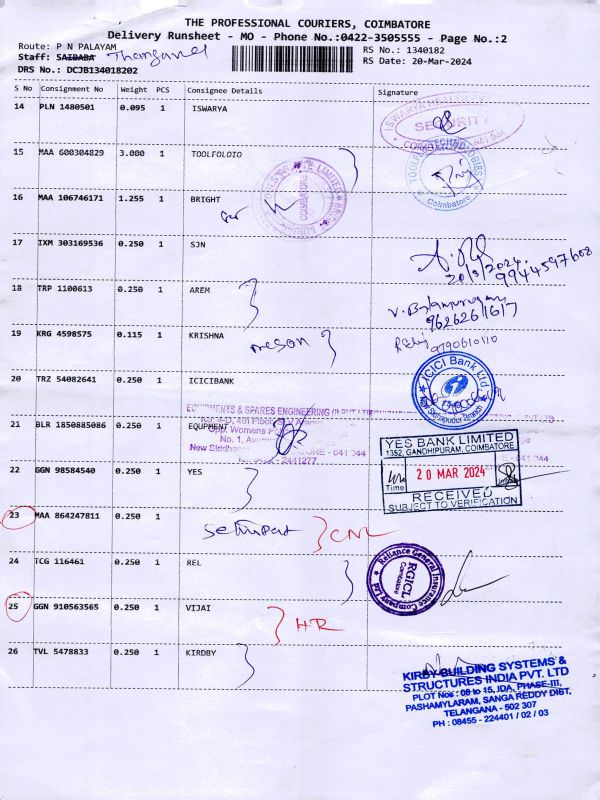 THE PROFESSIONAL COURIERS, COIMBATORE
Delivery Runsheet - MO - Phone No.:0422-3505555 - Page No.:2
Route: P N PALAYAM
RS No.: 1340182
Staff: SAIBABA
RS Date: 20-Mar-2024
DRS No.: DCJB134018202
S No Consignment No Weight PCS Consignee Details Signature
14 PLN 1480501 0.095 1 ISWARYA
SECURITY
15 MAA 600304829 3.000 1 TOOLFOLOIO
Coimbatore
16 MAA 106746171 1.255 1 BRIGHT
COIMBATORE
17 IXM 303169536 0.250 1 SJN
20/3/2024
9944597608
18 TRP 1100613 0.250 1 AREM
9626261617
19 KRG 4598575 0.115 1 KRISHNA
meson
9790610110
20 TRZ 54082641 0.250 1 ICICIBANK
ICICI Bank Ltd
EQUIPMENTS & SPARES ENGINEERING
21 BLR 1850885086 0.250 1 EQUPMENT
Opp. Womens
No. 1,
New Siddha
641 044
2441277
YES BANK LIMITED
1352, GANDHIPURAM, COIMBATORE
20 MAR 2024
Time
RECEIVED
SUBJECT TO VERIFICATION
22 GGN 98584540 0.250 1 YES
23 MAA 864247811 0.250 1
24 TCG 116461 0.250 1 REL
Reliance General Insurance Company Ltd
RGICL
Coimbatore
25 GGN 910563565 0.250 1 VIJAI
HR
26 TVL 5478833 0.250 1 KIRDBY
KIRBY BUILDING SYSTEMS &
STRUCTURES INDIA PVT. LTD
PLOT Nos : 08 to 15, IDA, PHASE-III,
PASHAMYLARAM, SANGA REDDY DIST,
TELANGANA - 502 307
PH : 08455 - 224401 / 02 / 03